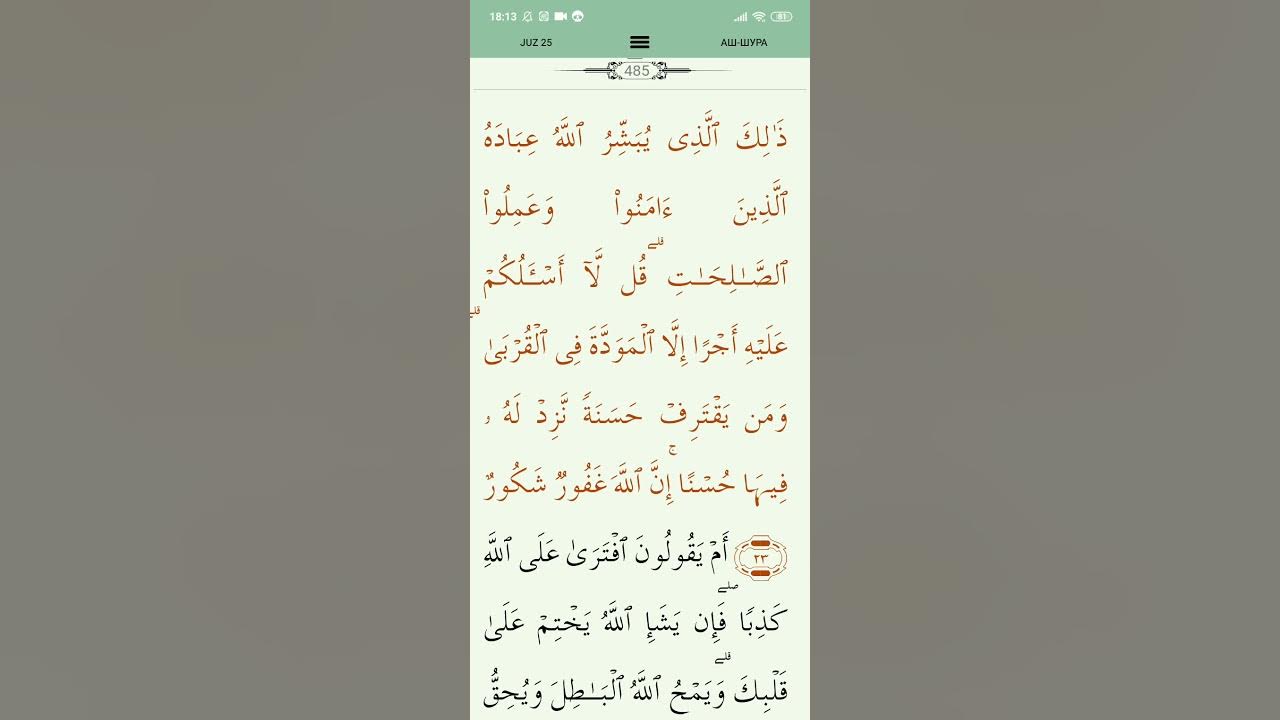 18:13 81
JUZ 25 АШ-ШУРА
485
ذَٰلِكَ ٱلَّذِى يُبَشِّرُ ٱللَّهُ عِبَادَهُ
ٱلَّذِينَ ءَامَنُوا۟ وَعَمِلُوا۟
ٱلصَّـٰلِحَـٰتِ ۗ قُل لَّآ أَسْـَٔلُكُمْ
عَلَيْهِ أَجْرًا إِلَّا ٱلْمَوَدَّةَ فِى ٱلْقُرْبَىٰ ۗ
وَمَن يَقْتَرِفْ حَسَنَةً نَّزِدْ لَهُ ۥ
فِيهَا حُسْنًا ۚ إِنَّ ٱللَّهَ غَفُورٌ شَكُورٌ
٢٣ أَمْ يَقُولُونَ ٱفْتَرَىٰ عَلَى ٱللَّهِ
كَذِبًا ۖ فَإِن يَشَإِ ٱللَّهُ يَخْتِمْ عَلَىٰ
قَلْبِكَ ۗ وَيَمْحُ ٱللَّهُ ٱلْبَـٰطِلَ وَيُحِقُّ